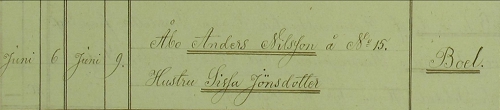 Åbo Anders Nilsson å No 15.
Juni 6 Juni 9. Boel.
Hustru Sissa Jönsdotter